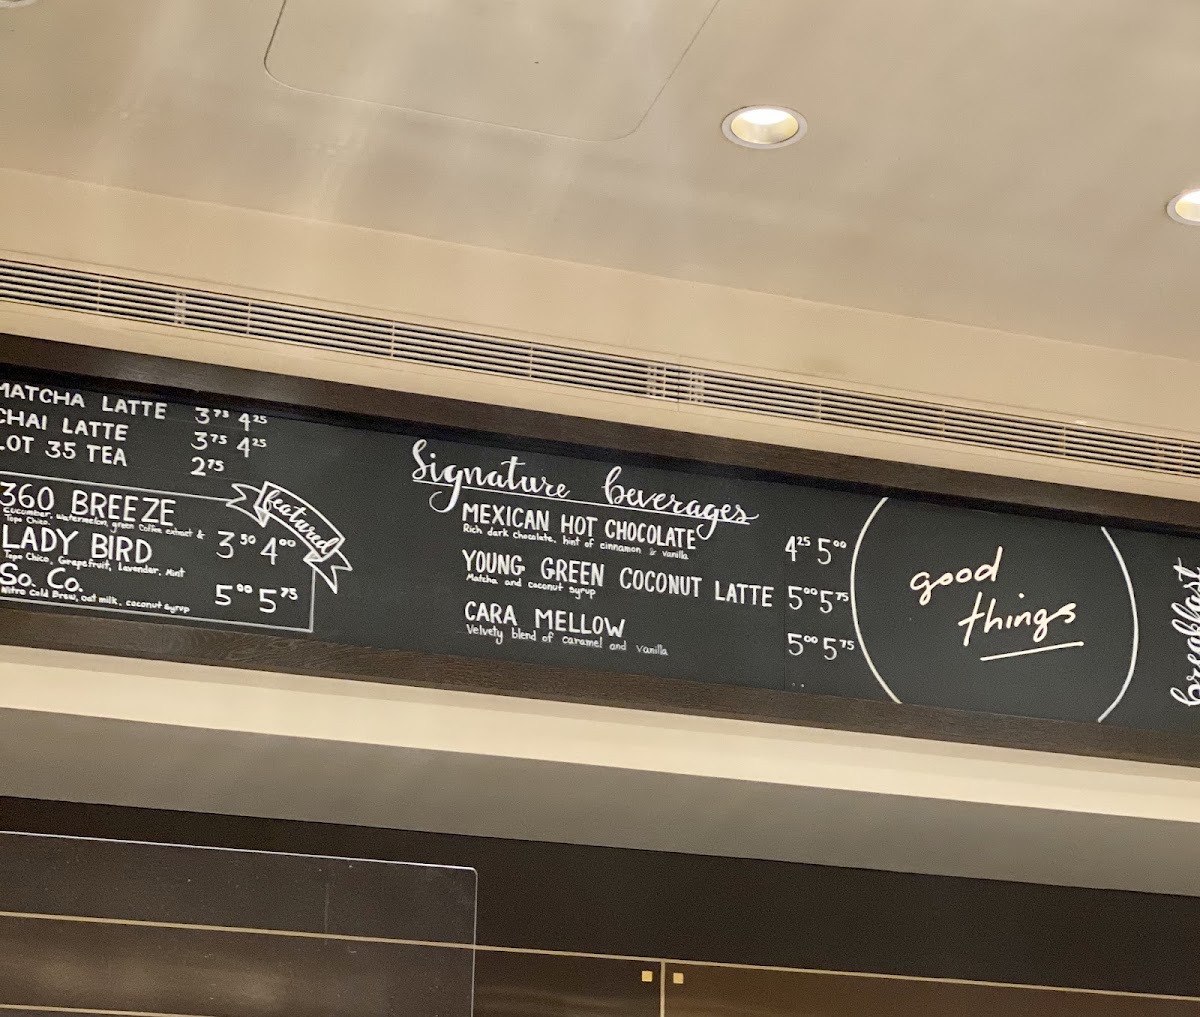 MATCHA LATTE 3.75 4.25
CHAI LATTE 3.75 4.25
LOT 35 TEA 2.75
featured
360 BREEZE 3.50 4.00
Cucumber, watermelon, green coffee extract &
Topo Chico.
LADY BIRD
Topo Chico, Grapefruit, Lavender, Mint
So. Co. 5.00 5.75
Nitro Cold Brew, oat milk, coconut syrup
Signature beverages
MEXICAN HOT CHOCOLATE 4.25 5.00
Rich dark chocolate, hint of cinnamon & vanilla
YOUNG GREEN COCONUT LATTE 5.00 5.75
Matcha and coconut syrup
CARA MELLOW 5.00 5.75
Velvety blend of caramel and vanilla
good
things
breakfast